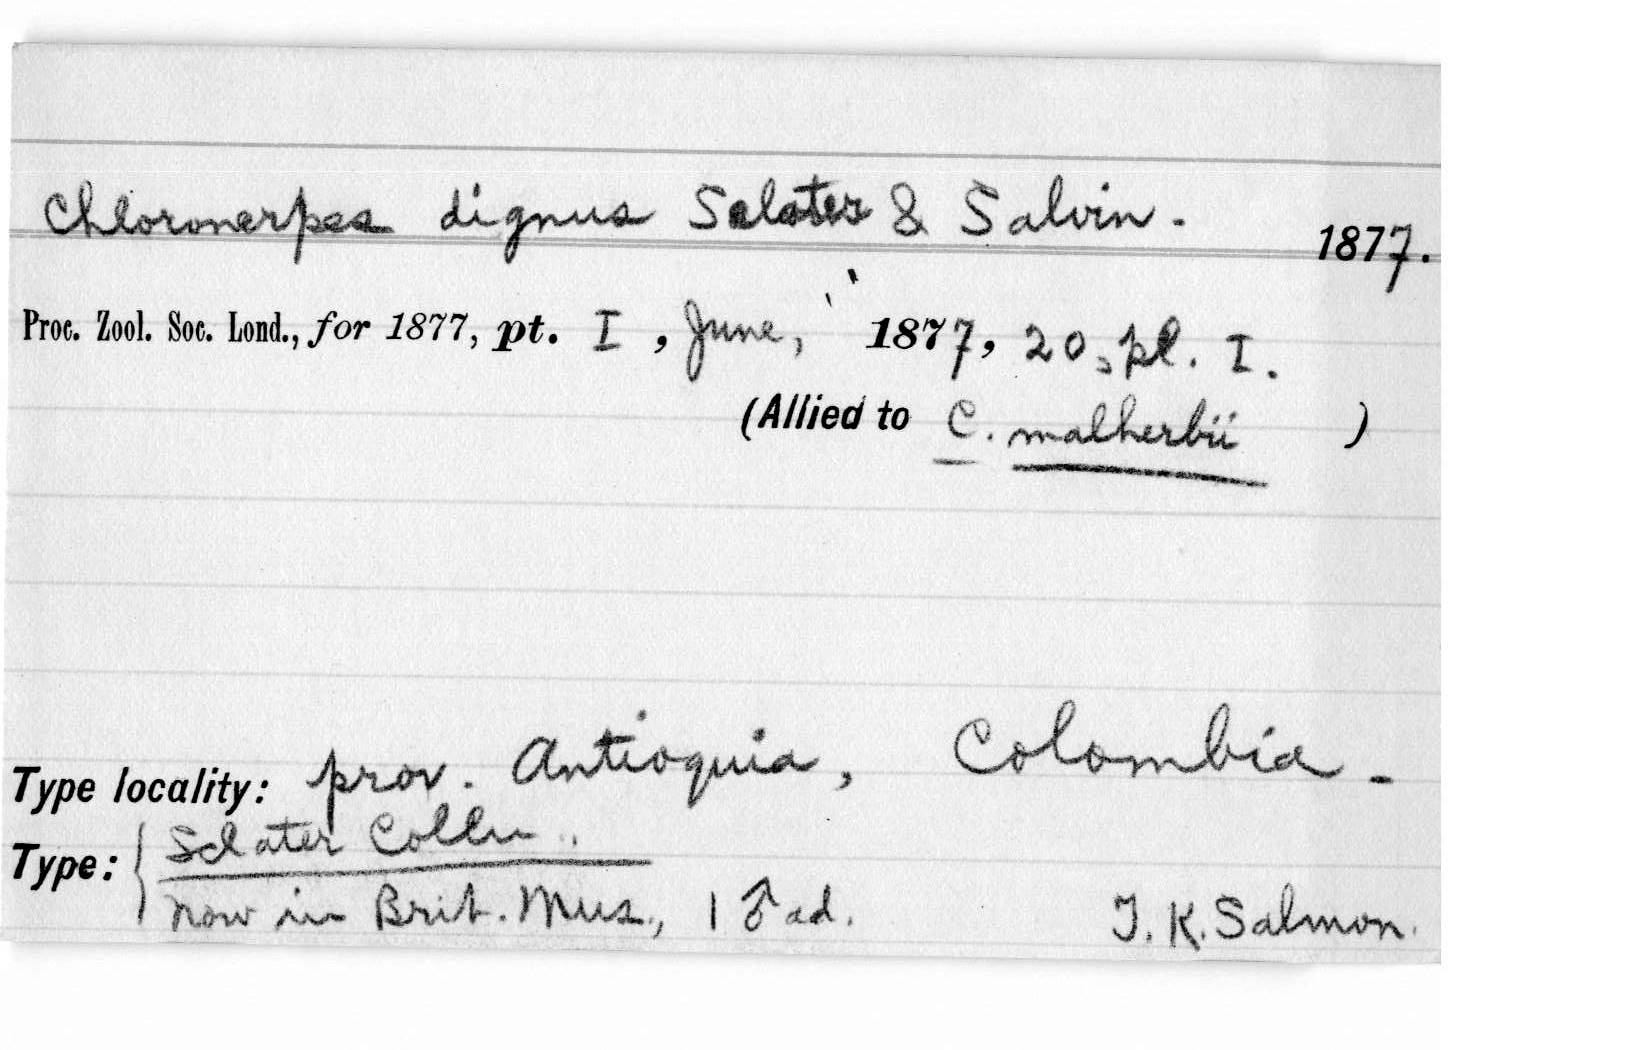 Chloronerpes dignus Sclater & Salvin. 1877.
Proc. Zool. Soc. Lond., for 1877, pt. I, June, 1877, 20, pl. I.
(Allied to C. malherbii )
Type locality: prov. Antioquia, Colombia -
Type: { Sclater Colln.
now in Brit. Mus., 1 ♂ ad. T. K. Salmon.